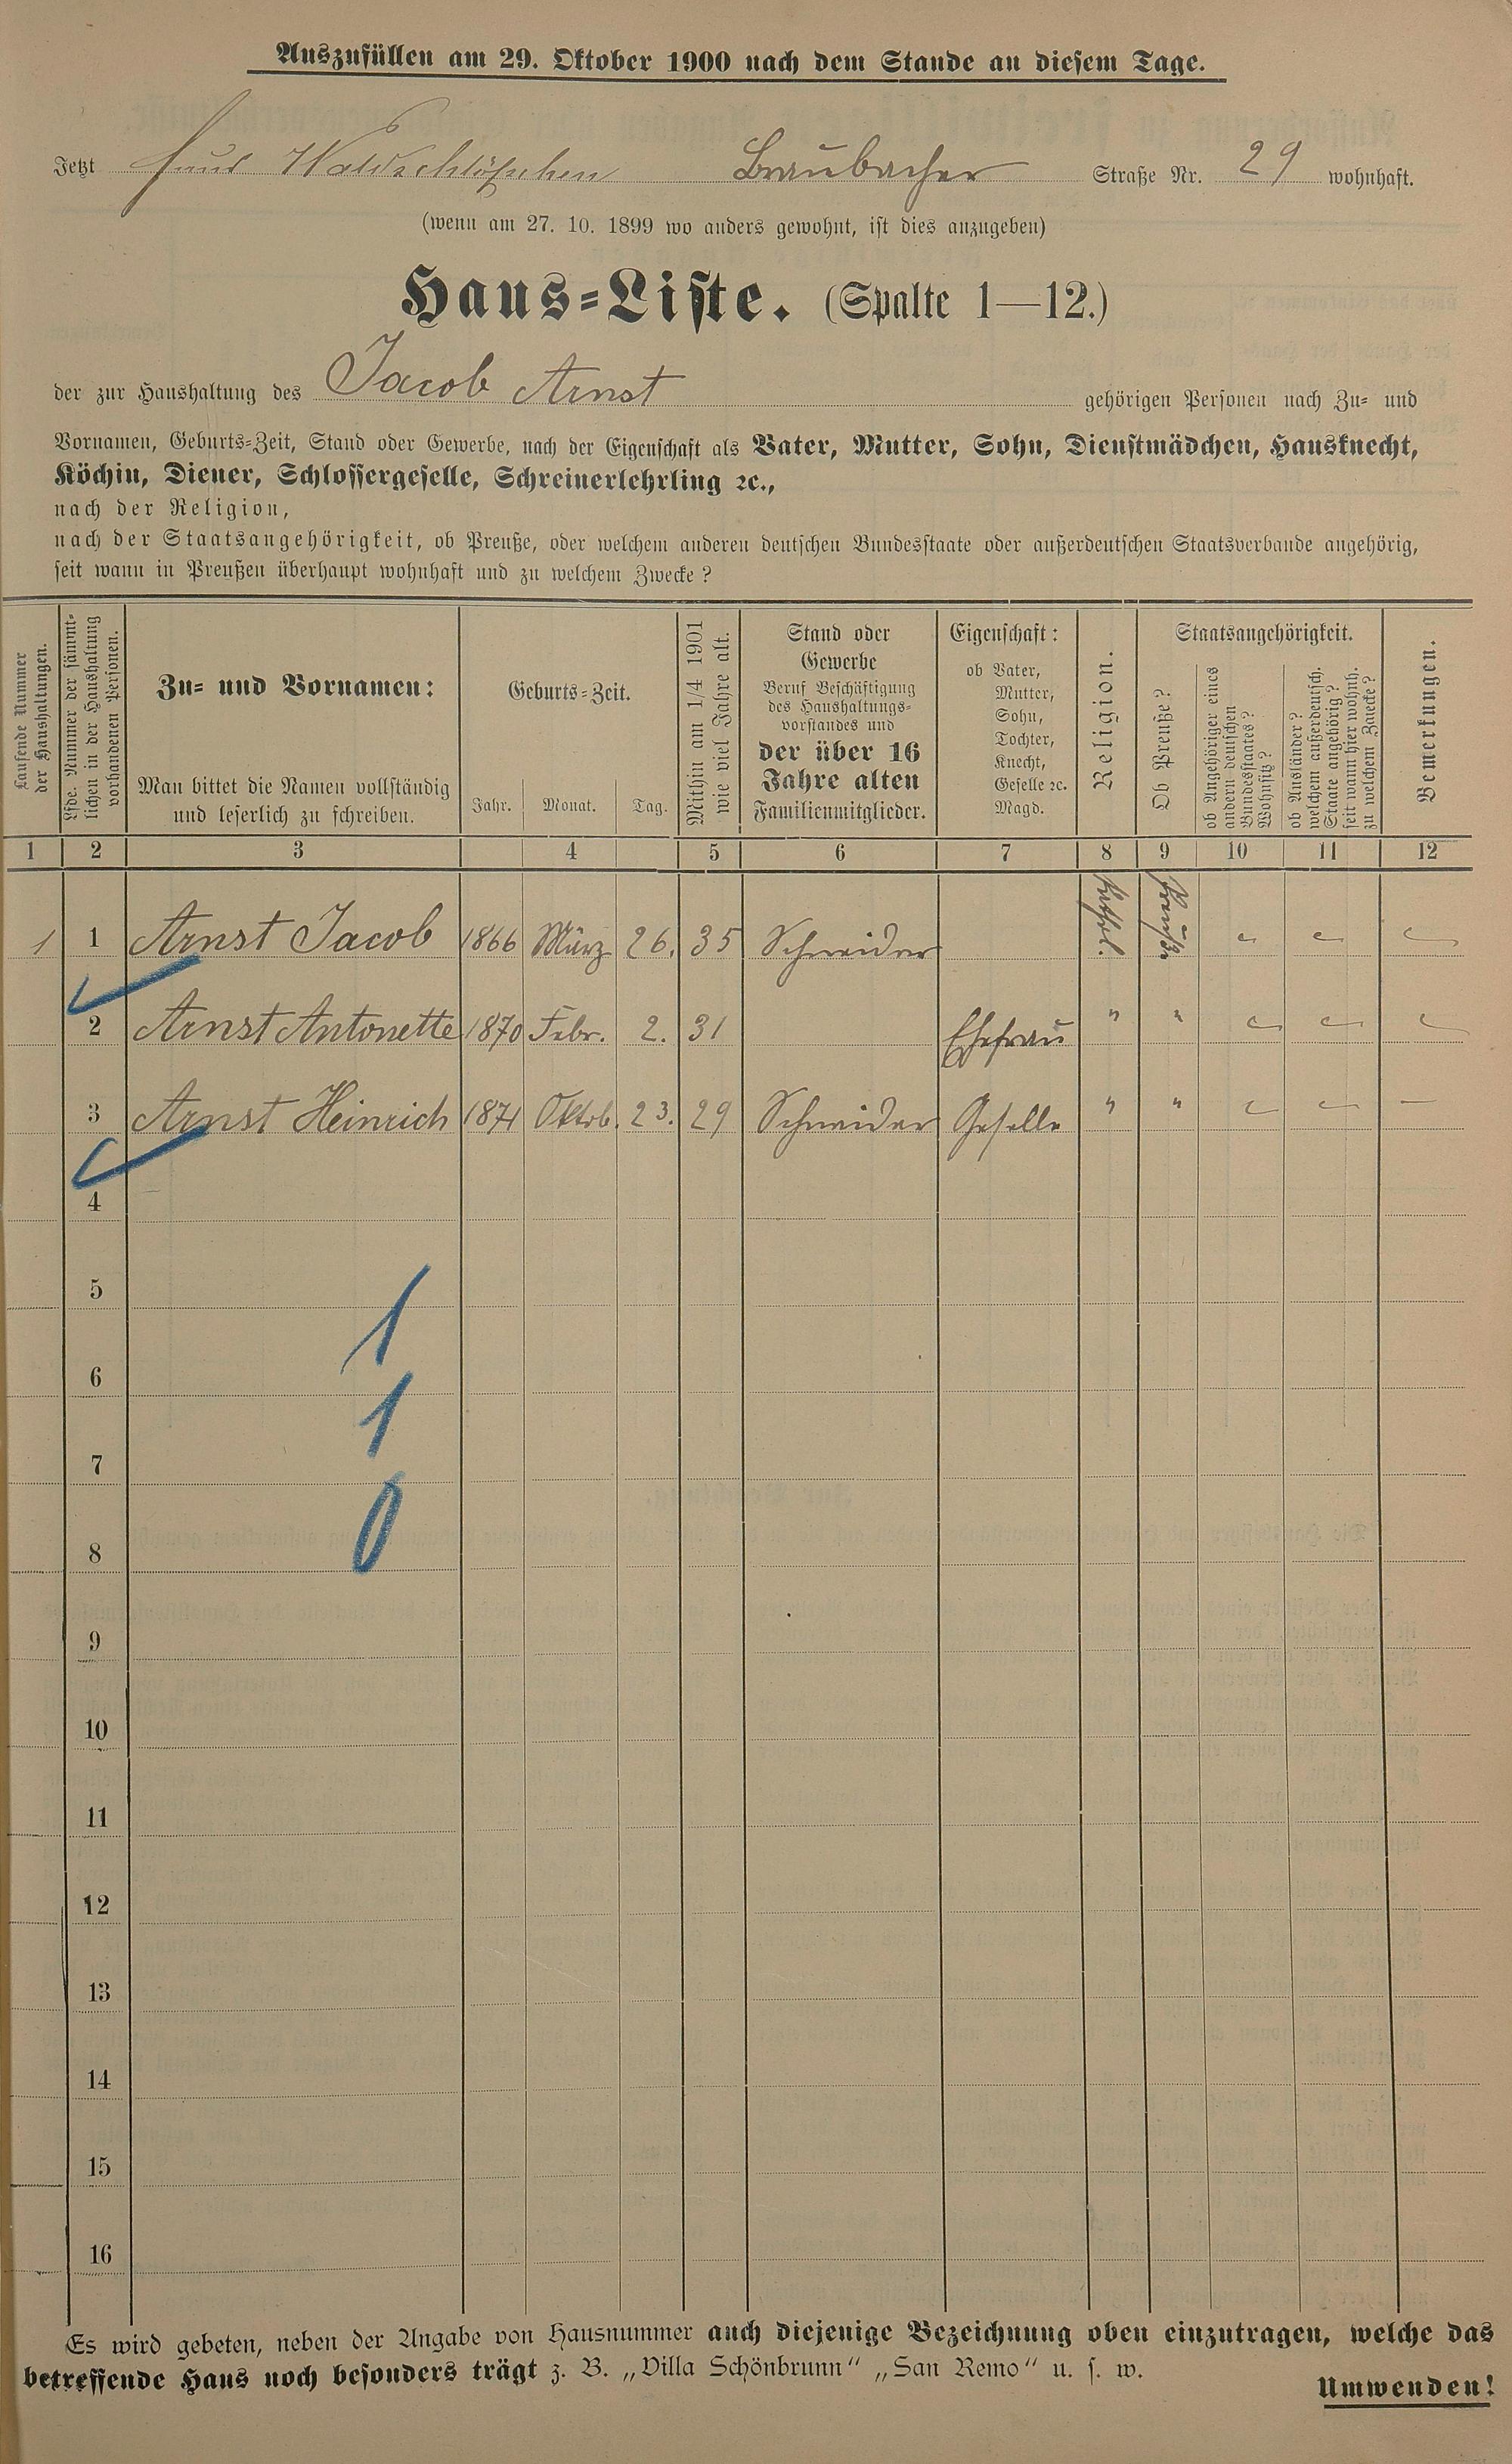 Auszufüllen am 29. Oktober 1900 nach dem Stande an diesem Tage.
Jetzt Haus Waldschlößchen Braubacher Straße Nr. 29 wohnhaft.
(wenn am 27. 10. 1899 wo anders gewohnt, ist dies anzugeben)
Haus-Liste. (Spalte 1—12.)
der zur Haushaltung des Jacob Arnst gehörigen Personen nach Zu- und
Vornamen, Geburts-Zeit, Stand oder Gewerbe, nach der Eigenschaft als Vater, Mutter, Sohn, Dienstmädchen, Hausknecht,
Köchin, Diener, Schlossergeselle, Schreinerlehrling ꝛc.,
nach der Religion,
nach der Staatsangehörigkeit, ob Preuße, oder welchem anderen deutschen Bundesstaate oder außerdeutschen Staatsverbande angehörig,
seit wann in Preußen überhaupt wohnhaft und zu welchem Zwecke?
Laufende Nummer
der Haushaltungen.
Lfde. Nummer der sämmt-
lichen in der Haushaltung
vorhandenen Personen.
Zu- und Vornamen:
Man bittet die Namen vollständig
und leserlich zu schreiben.
Geburts-Zeit.
Jahr. Monat. Tag.
Mithin am 1/4 1901
wie viel Jahre alt.
Stand oder
Gewerbe
Beruf Beschäftigung
des Haushaltungs-
vorstandes und
der über 16
Jahre alten
Familienmitglieder.
Eigenschaft:
ob Vater,
Mutter,
Sohn,
Tochter,
Knecht,
Geselle ꝛc.
Magd.
Religion.
Staatsangehörigkeit.
Ob Preuße?
ob Angehöriger eines
andern deutschen
Bundesstaates?
Wohnsitz?
ob Ausländer?
welchem außerdeutsch.
Staate angehörig?
seit wann hier wohnh.
zu welchem Zwecke?
Bemerkungen.
1 2 3 4 5 6 7 8 9 10 11 12
1 1 Arnst Jacob 1866 März 26. 35 Schneider Kathol. Preuße
2 Arnst Antonette 1870 Febr. 2. 31 Ehefrau " "
3 Arnst Heinrich 1871 Oktob. 23. 29 Schneider Geselle " " —
4
5
1
6
1
7
0
8
9
10
11
12
13
14
15
16
Es wird gebeten, neben der Angabe von Hausnummer auch diejenige Bezeichnung oben einzutragen, welche das
betreffende Haus noch besonders trägt z. B. „Villa Schönbrunn“ „San Remo“ u. s. w.
Umwenden!